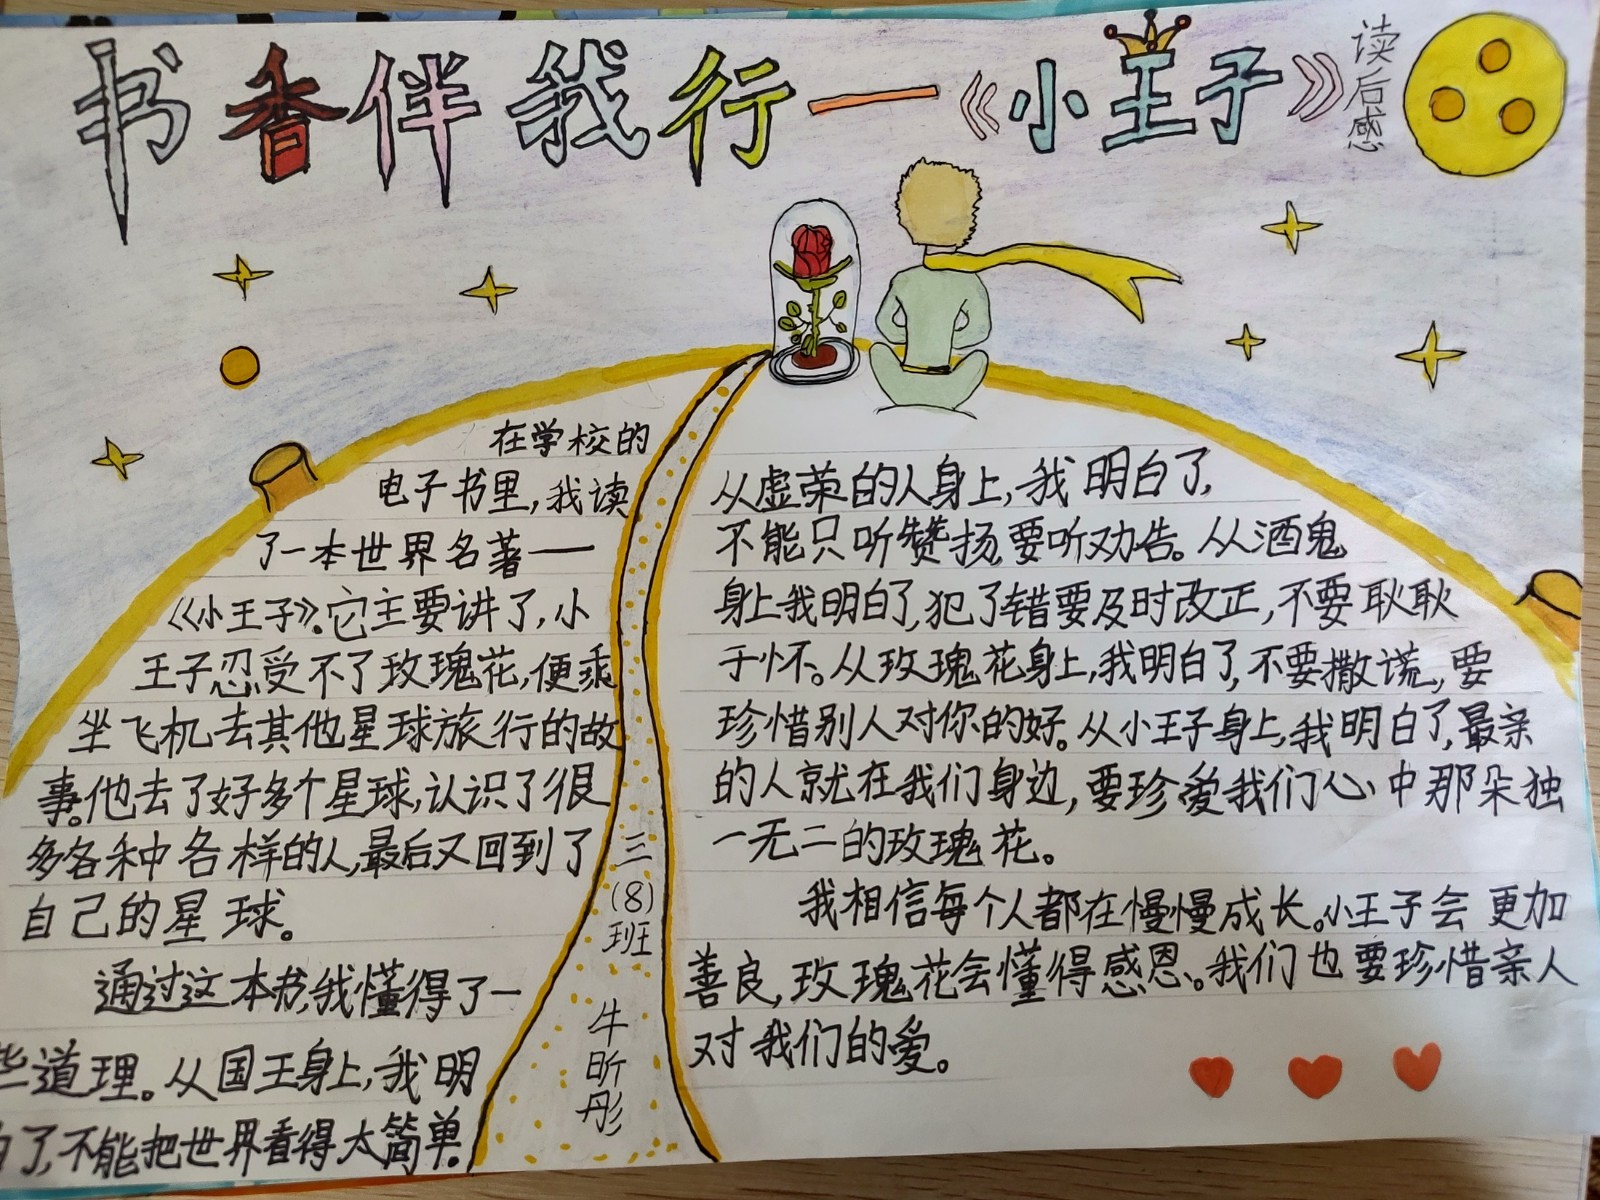 书香伴我行—《小王子》读后感
在学校的
电子书里,我读
了一本世界名著——
《小王子》。它主要讲了,小
王子忍受不了玫瑰花,便乘
坐飞机去其他星球旅行的故
事。他去了好多个星球,认识了很
多各种各样的人,最后又回到了
自己的星球。
通过这本书,我懂得了一
些道理。从国王身上,我明
白了,不能把世界看得太简单。
从虚荣的人身上,我明白了,
不能只听赞扬,要听劝告。从酒鬼
身上我明白了,犯了错要及时改正,不要耿耿
于怀。从玫瑰花身上,我明白了,不要撒谎,要
珍惜别人对你的好。从小王子身上,我明白了,最亲
的人就在我们身边,要珍爱我们心中那朵独
一无二的玫瑰花。
我相信每个人都在慢慢成长。小王子会更加
善良,玫瑰花会懂得感恩。我们也要珍惜亲人
对我们的爱。
三(8)班
牛昕彤